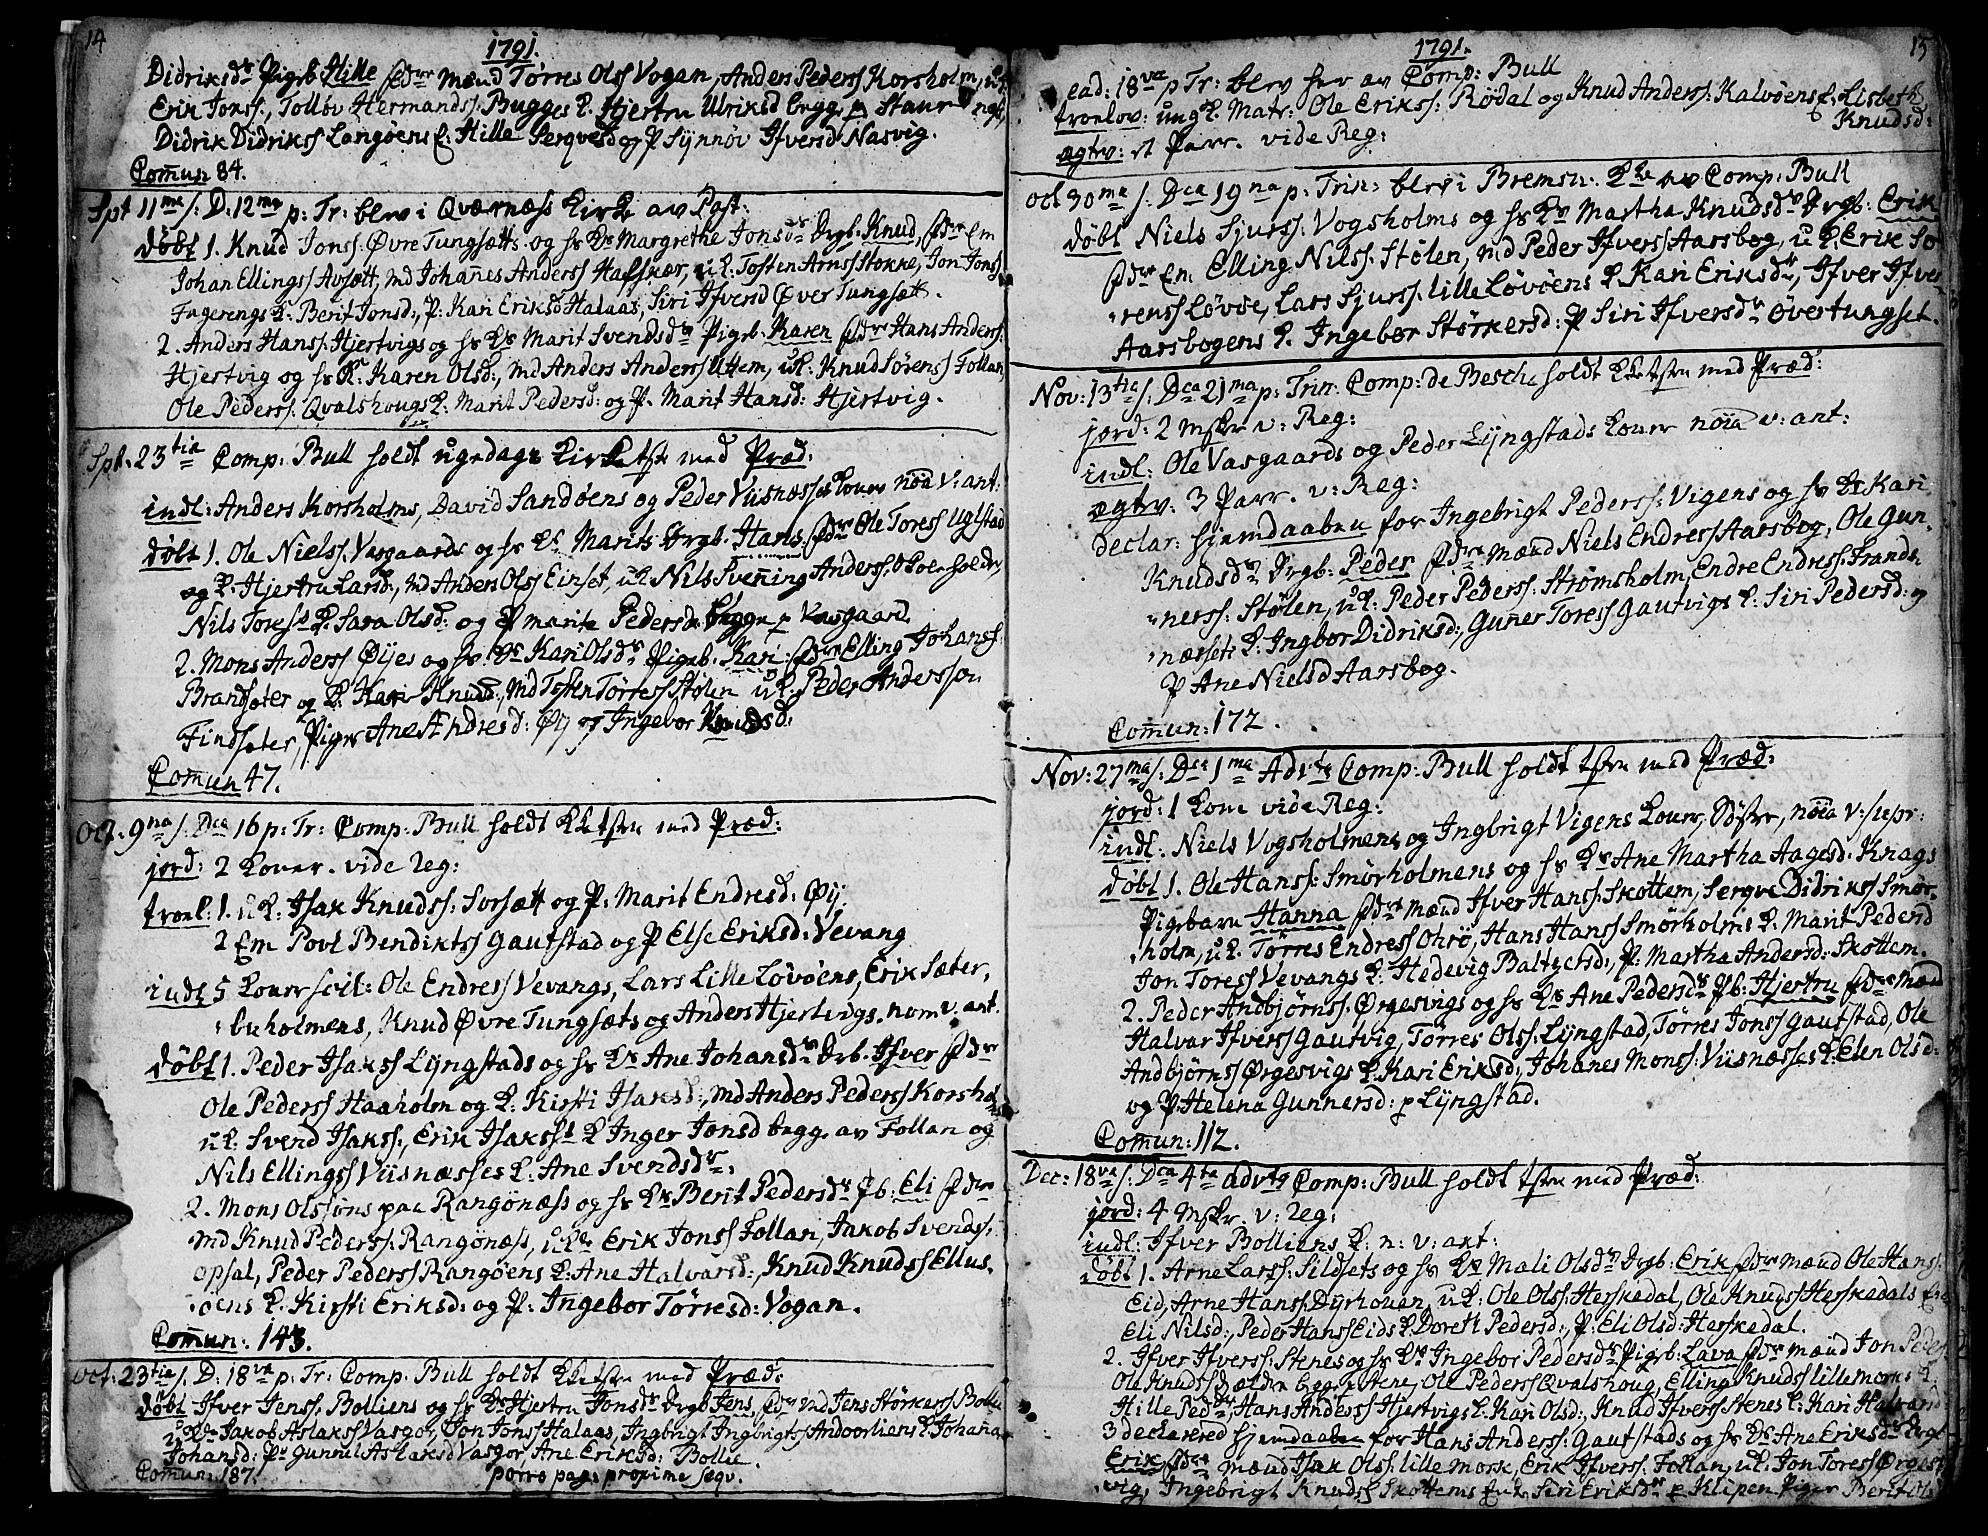 14
1791.
Didriksdr Pigeb. Hille fadr mænd Tørres Olss Vogan, Anders Pederss Korsholm,
Erik Jonss:, Tollov Hermandss: Bugges K. Hjertru Ulriksd begge p Staur
Didrik Didrikss Langøens K: Hille Serqvesd og P Synnøv Ifversd Nasvig.
Comun 84.
Spt 11me/. D: 12ma p: Tr: blev i Qværness Kirke av Past:
døbt 1. Knud Jonss: Øvre Tungsætts og hs Ks Margrethe Jonsdr Drgb. Knud, fadr Em
Johan Ellingss Avsætt, md Johanes Anderss Hafskær, uk. Tosten Arnss Stokke, Jon Jonss
Fagerengs K. Berit Jonsd:, P: Kari Eriksd Halaas, Siri Ifversd Øver Tungsætt.
2. Anders Hanss: Hjertvigs og hs Ks Marit Svendsdr Pigeb. Karen fadr Hans Anderss:
Hjertvig og hs K: Karen Olsd:, md Anders Anderss Uttem, uk. Knud Sørenss Follan,
Ole Pederss. Qvalshougs K. Marit Pedersd: og P. Marit Hansd: Hjertvig.
Spt. 23tia Comp: Bull holdt ugedags Kirketste med Præd:
indl: Anders Korsholms, David Sandøens og Peder Viisnæsses Koner noia v: ant:
døbt 1. Ole Nielss. Vasgaards og hs Ks Marits Drgb. Hans fadr Ole Toress Uglstad
og K. Hjertru Larsd:, md Anders Olss Einset, uk. Nils Svenning Anderss.
Nils Toress K. Sara Olsd: og P marit Pedersd. begge p Vasgaard
2. Mons Anderss Øijes og hs Ks Kari Olsdr Pigeb. Kari fadr Elling Johanss
Brandsæter og K. Kari Knudsd:, md Tosten Tørress Stølen uk: Peder Andersson
Findsæter, Piger Ane Ændresd: Øij og Ingebor Knudsd:
Comun 47.
Oct. 9na/. Dca 16 p: Tr: Comp: Bull holdt Kketste med Præd:
jord: 2 Koner. vide Reg:
troel: 1. uk: Isak Knudss: Sorsætt og P: Marit Endresd: Øij.
2 Em Povl Bendiktss Gautstad og P Else Eriksd: Vevang
indl 5 Koner scil: Ole Endress Vevangs, Lars Lille Løvøens, Erik Sæter,
buholmens, Knud Øvre Tungsæts og Anders Hjertvigs. nom v. ant.
døbt 1. Peder Isakss Lyngstads og hs Ks Ane Johansdr Drb. Ifver fadr
Ole Pederss Haaholm og K: Kirsti Isaksd:, md Anders Pederss Korshol
uk: Svend Isakss:, Erik Isakss K Inger Jonsd begge av Follan og
Nils Ellingss Viisnæsses K: Ane Svendsdr.
2. Mons Olssøns paa Rangønæss og hs Ks Berit Pedersdr Pb: Eli fadr
md Knud Pederss: Rangønæss, uk Erik Jonss Follan, Jakob Svendss:
opsal, Peder Pederss Rangøens K: Ane Halvarsd:, Knud Knudss Ellus.
øens K. Kirsti Eriksd: og P: Ingebor Tørresd: Vogan.
Comun: 143.
Oct: 23tia/. D: 18va p: Tr: Comp: Bull holdt Kketste med Præd:
døbt Ifver Jenss: Bolliens og hs Ks Hjertru Jonsdr Drgb Jens, fadr md Jens Størkerss Bollie
uk: Jakob Aslakss Vasgor, Jon Jonss Halaas, Ingbrigt Ingbrigtss Andoorliens K Johana
Johansd: Ps Gunnel Aslaksd Vasgor, Ane Eriksd: Bollie.
Comun: 187.
porro pag: proxime seqv.
15
1791.
ead: 18va p Tr: blev her av Comp: Bull
troelov: ung K. Matr: Ole Erikss: Rødal og Knud Anderss: Kalvøens E: Lisbeth
Knudsd:
ægtev: et Parr. vide Reg:
Oct 30ma/. Dca 19na p: Trin: blev i Bremsn: Kke av Comp: Bull
døbt Niels Sjurss: Vogsholms og hs Ks Martha Knudsdr Drgb: Erik
fadr Em: Elling Nilss: Stølen, md Peder Ifverss Aarsbog, uk. Erik So
renss Løvøe, Lars Sjurss: Lille Løvøens K. Kari Eriksdr, Ifver Ifver
Aarsbogens K. Ingebor Størkersd: P Siri Ifversdr Øvertungset.
Nov: 13tia/. Dca 21ma p: Trin: Comp: de Besche holdt Kketste med Præd:
jord: 2 msker v: Reg:
indl: Ole Vasgaards og Peder Lyngstads Koner noia v: ant:
ægtev: 3 Parr. v: Reg:
declar: hjemdaaben for Ingebrigt Pederss: Vigens og hs Ks Kari
Knudsdr Drgb: Peder fadr mænd Niels Endress Aarsbog, Ole Gun-
nerss: Stølen, uk: Peder Pederss: Strømsholm, Endre Endress: Frands
næssets K. Ingbor Didriksd:, Guner Toress Gautvigs K: Siri Pedersd: og
P Ane Nielsd Aarsbog.
Comun: 172.
Nov: 27ma/. Dca 1ma Advts Comp: Bull holdt tste med Præd:
jord: 1 Kone vide Reg:
indl: Niels Vogsholmens og Ingbrigt Vigens Koner, noia v: supr:
døbt 1. Ole Hanss: Smørholmens og hs Ks Ane Martha Aagesd: Knags
Pigebarn Hanna fadr mænd Ifver Hanss: Skottem, Serqve Didrikss Smør-
holm, uk. Tørres Endress Ohrø, Hans Hanss Smørholms K. Marit Pedersd
Jon Toress Vevangs K. Hedevig Baltzersd:, P: Martha Andersd: Skottem.
2. Peder Andbjørnss: Ørgesvigs og hs Ks Ane Pedersdr Pb: Hjertru fadr mænd
Halvar Ifverss Gautvig, Tørres Olss: Lyngstad, Tørres Jonss Gautstad, Ole
Andbjørnss Ørgesvigs K. Kari Eriksd:, Johanes Monss: Viisnæsses K: Elen Olsd:
og P: Helena Gunnersd: p Lyngstad.
Comun: 112.
Dec: 18va/. Dca 4ta advts Comp: Bull holdt tste med Præd:
jord: 4 msker. v: Reg:
indl: Ifver Bolliens K: n: v: ant:
døbt 1. Arne Larss: Sildsets og hs Ks Mali Olsdr Drgb: Erik fadr mænd Ole Hanss:
Eid, Arne Hanss: Dyrhouen, uk: Ole Olss: Herskedal, Ole Knudss Herskedals
Eli Nilsd:, Peder Hanss Eids K. Doret Pedersd:, P: Eli Olsd: Herskedal.
2. Ifver Ifverss: Stenes og hs Ks Ingebor Pedersdr Pigeb: Lava fadr mænd Jon Peder
Ole Knudss begge p Stene, Ole Pederss Qvalshoug, Elling Knudss Lillemorks K.
Hille Pedsdr, Hans Anderss Hjertvigs K. Kari Olsd:, Knud Ifverss Stenes K: Kari
3 declarered hjemdaaben for Hans Anderss: Gautstads og hs Ks Ane Eriksdr Drgb
Erik fadr mænd Isak Olss: Lillemork, Erik Ifverss: Follan, uk: Jon Toress Ørges
vig, Ingebrigt Knudss Skottems Siri Eriksdr p Klipen Piger Berit Ols